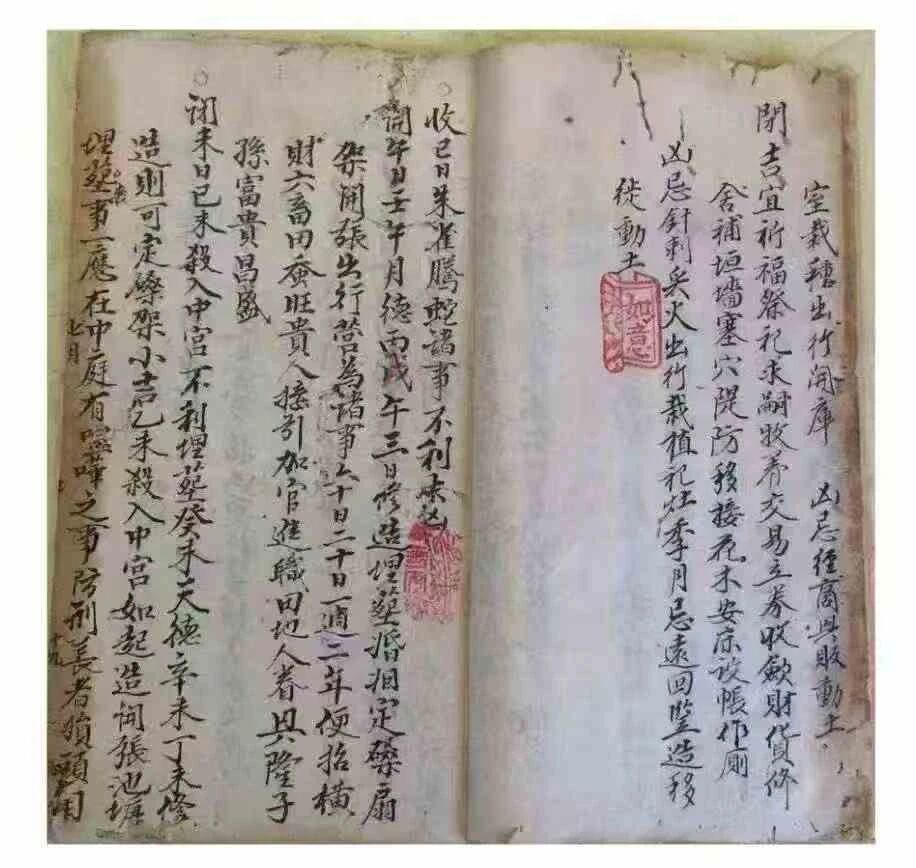 室栽種出行開庫　凶忌經商興販動土
閉吉宜祈福祭祀求嗣牧养交易立券收歛財貨修
舍補垣墙塞穴隄防移接花木安床設帳作厠
凶忌針刺炙火出行栽植祀灶季月忌遠回竪造移
徙動土
如意
收巳日朱雀騰蛇諸事不利凶
開午日壬午月德丙戊午三日修造埋塟婚姻定磉扇
架開張出行營為諸事六十日二十日一週二年便招橫
財六畜田蚕旺貴人接引加官進職田地人眷興隆子
孫富貴昌盛
閉未日已未殺入中宮不利埋塟癸未天德辛未丁未修
造則可定磉架小吉乙未殺入中宮如起造開張池塘
埋塟事一應在中庭有喧嘩之事防刑
七月
十九